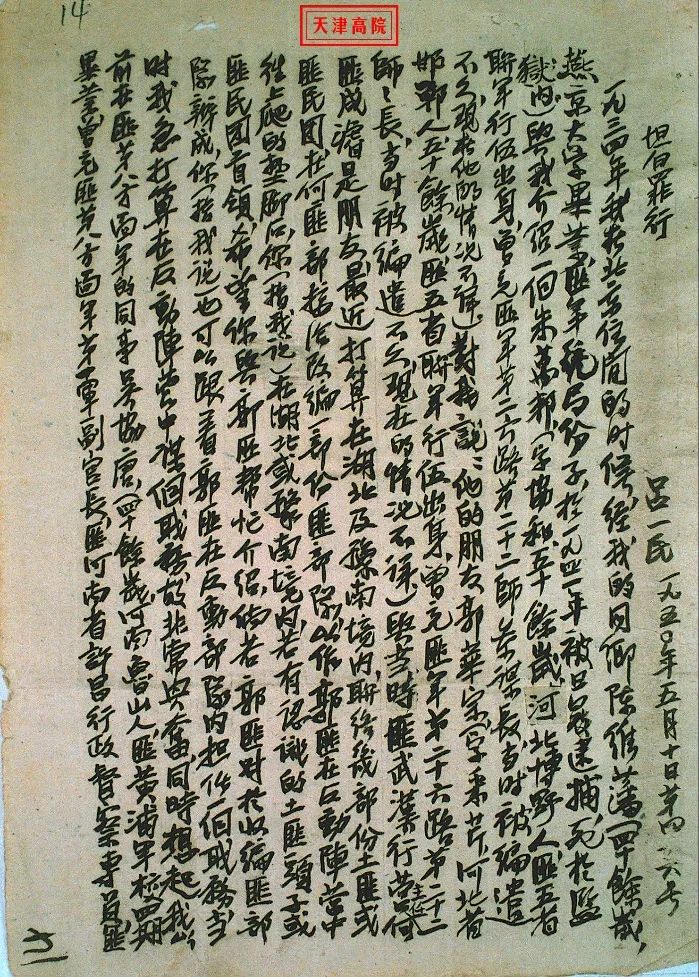 14
天津高院
坦白罪行
吕一民 一九五〇年五月十日 第四 六号
一九三四年我在北京住闲的时候,经我的同乡陈维藩(四十余岁,
燕京大学毕业,匪军统局份子,于一九四一年被日寇逮捕,死于监
狱内)与我介绍一个朱万邦,(字协和,五十余岁,河北博野人,匪五省
联军行伍出身,曾充匪军第二六路第二十二师参谋长,当时被编遣
不久,现在他的情况不详)对我说:他的朋友郭华宗,字秉芹,河北省
邯郸人,五十余岁,匪五省联军行伍出身,曾充匪军第二十六路第二十二
师师长,当时被编遣不久,现在的情况不详)与当时匪武汉行营主任何
匪成濬是朋友,最近打算在湖北及豫南境内,联络几部份土匪或
匪民团,在何匪部接洽改编一部份匪部队,以作郭匪在反动阵营中
往上爬的垫脚石,你(指我说)在湖北或豫南境内,若有认识的土匪头子或
匪民团首领,希望你与郭匪帮忙介绍,倘若郭匪对于收编匪部
队办成,你(指我说)也可以跟着郭匪在反动部队内担任一个职务,当
时我急打算在反动阵营中谋个职务,故非常兴奋,同时想起我以
前在匪第八方面军的同事吴协唐,(四十余岁,河南鲁山人,匪黄浦军校四期
毕业,曾充匪第八方面军第一军副官长,匪河南省许昌行政督察专员,匪